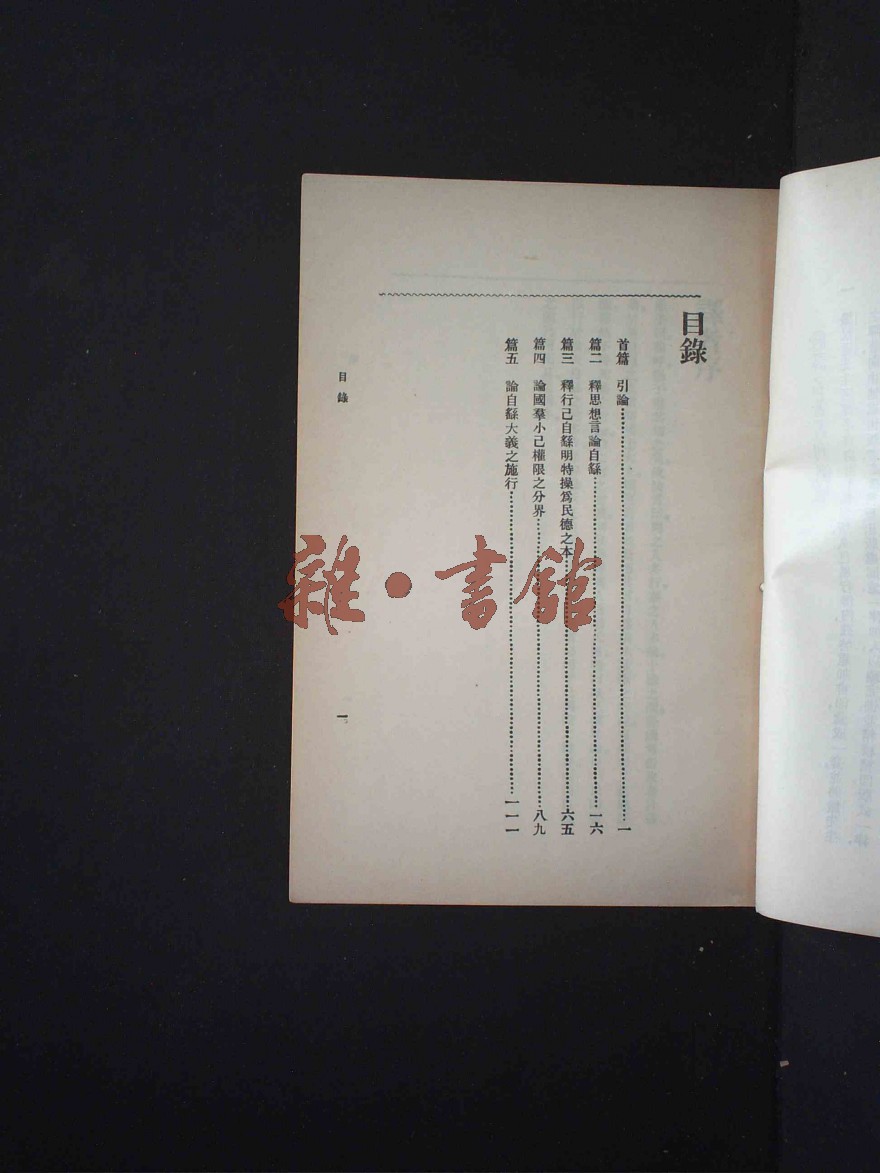 目錄
首篇 引論……………一
篇二 釋思想言論自繇……………一六
篇三 釋行己自繇明特操爲民德之本……………六五
篇四 論國羣小己權限之分界……………八九
篇五 論自繇大義之施行……………一一一
目錄
一
雜·書館